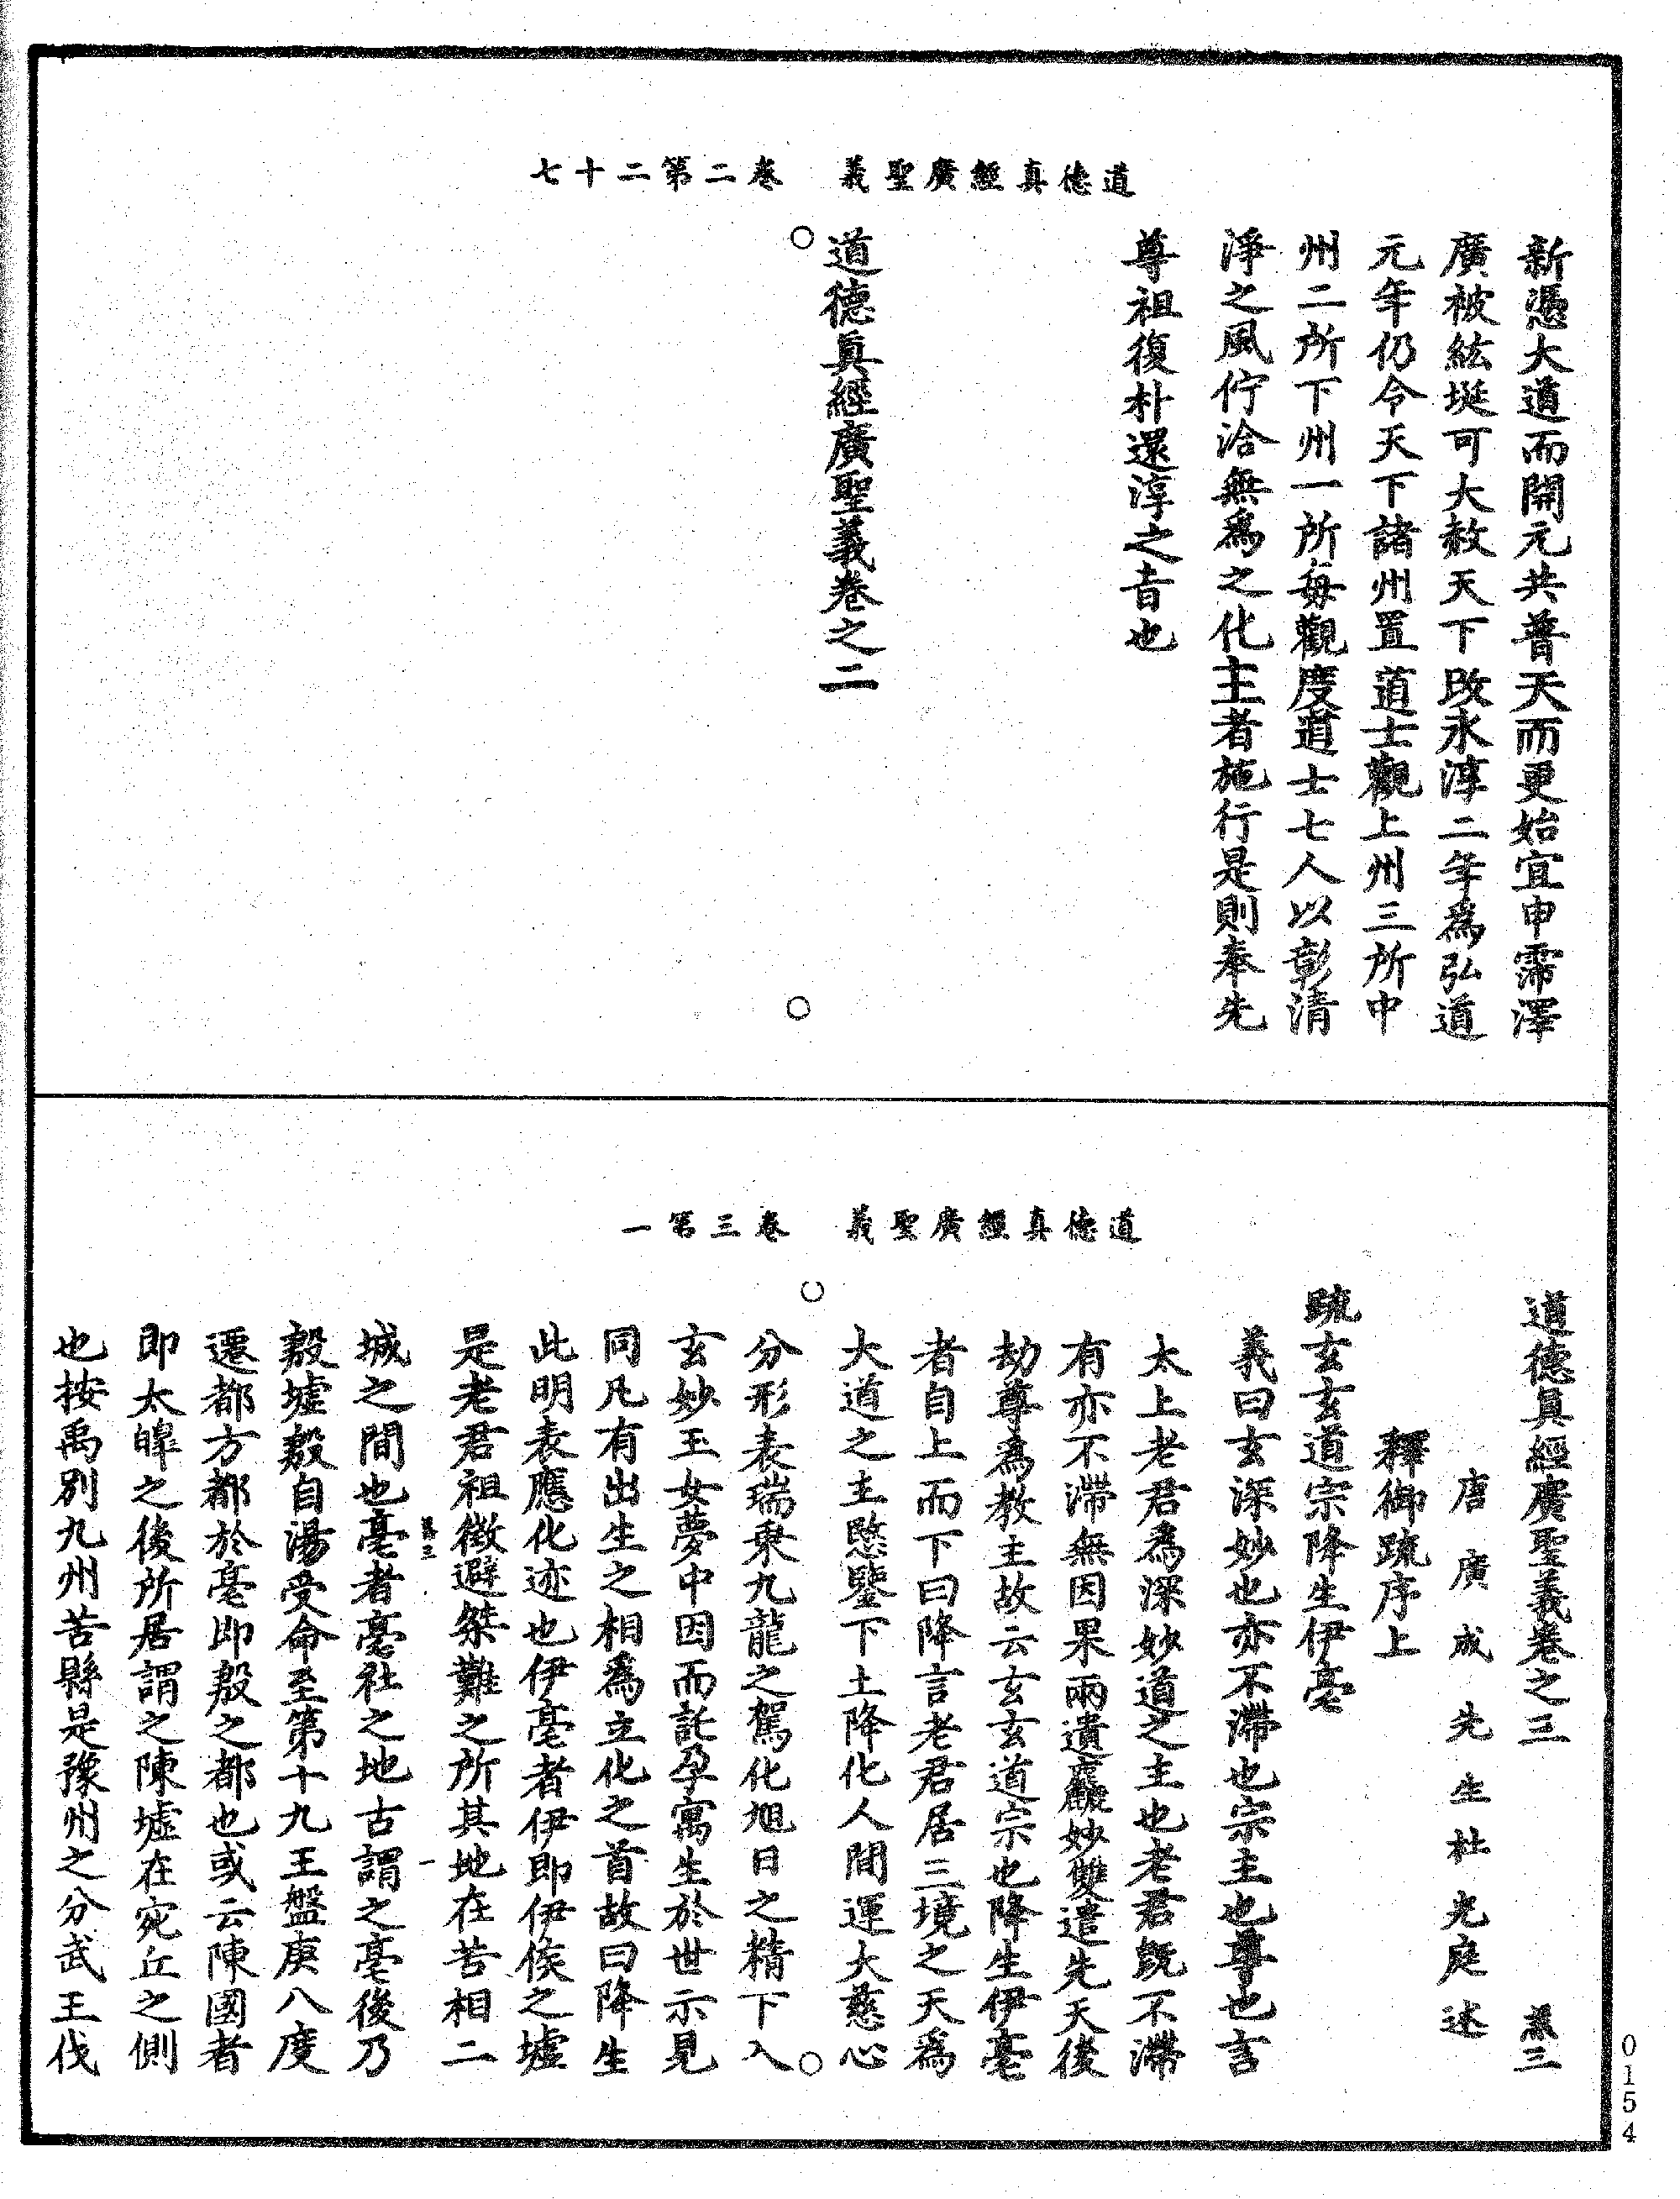 道德真經廣聖義　卷二第二十七
新憑大道而開元共普天而更始宜申霈澤
廣被紘埏可大赦天下改永淳二年為弘道
元年仍令天下諸州置道士觀上州三所中
州二所下州一所每觀度道士七人以彰清
淨之風佇洽無為之化主者施行是則奉先
尊祖復朴還淳之旨也
道德真經廣聖義卷之二
道德真經廣聖義　卷三第一
道德真經廣聖義卷之三　羔三
唐廣成先生杜光庭述
釋御疏序上
疏玄玄道宗降生伊亳
義曰玄深妙也亦不滯也宗主也尊也言
太上老君為深妙道之主也老君既不滯
有亦不滯無因果兩遺麤妙雙遣先天後
劫尊為教主故云玄玄道宗也降生伊亳
者自上而下曰降言老君居三境之天為
大道之主愍鑒下土降化人間運大慈心
分形表瑞乘九龍之駕化旭日之精下入
玄妙玉女夢中因而託孕寓生於世示見
同凡有出生之相為立化之首故曰降生
此明表應化迹也伊亳者伊即伊侯之墟
是老君祖徵避桀難之所其地在苦相二
羔三　一
城之間也亳者亳社之地古謂之亳後乃
殷墟殷自湯受命至第十九王盤庚八度
遷都方都於亳即殷之都也或云陳國者
即太皥之後所居謂之陳墟在宛丘之側
也按禹別九州苦縣是豫州之分武王伐
0154